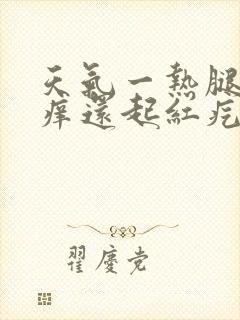 天氣一熱腿
痒還起紅疙
翟慶党